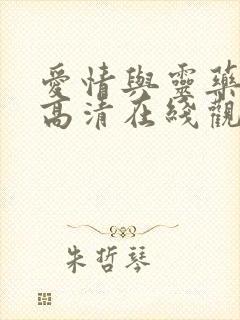 愛情與靈藥
高清在綫觀
朱哲琴